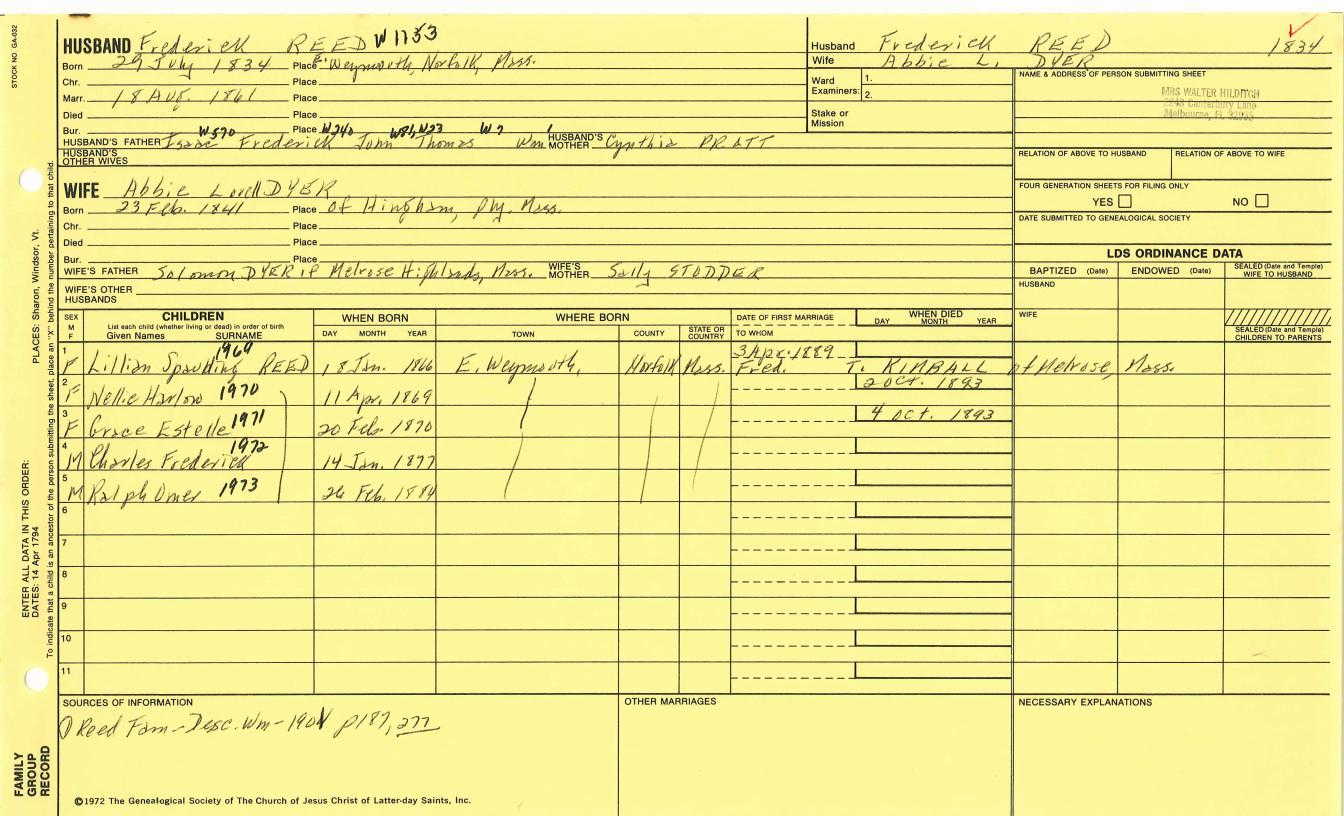 STOCK NO. GA-032
PLACES: Sharon, Windsor, Vt.
ENTER ALL DATA IN THIS ORDER:
DATES: 14 Apr 1794
To indicate that a child is an ancestor of the person submitting the sheet, place an "X" behind the number pertaining to that child.
FAMILY GROUP RECORD
HUSBAND Frederick REED W1753
Born 29 July 1834 Place E. Weymouth, Norfolk, Mass.
Chr. Place
Marr. 18 Aug. 1861 Place
Died Place
Bur. Place
W570 W240 W81, W23 W7 1
HUSBAND'S FATHER Isaac Frederick John Thomas Wm HUSBAND'S MOTHER Cynthia PRATT
HUSBAND'S OTHER WIVES
WIFE Abbie Lovell DYER
Born 23 Feb. 1841 Place of Hingham, Ply. Mass.
Chr. Place
Died Place
Bur. Place
WIFE'S FATHER Solomon DYER of Melrose Highlands, Mass. WIFE'S MOTHER Sally STODDER
WIFE'S OTHER HUSBANDS
Husband Frederick REED 1834
Wife Abbie L. DYER
Ward Examiners: 1. 2.
Stake or Mission
NAME & ADDRESS OF PERSON SUBMITTING SHEET
MRS WALTER HILDITCH
2248 Canterbury Lane
Melbourne, Fl. 32935
RELATION OF ABOVE TO HUSBAND RELATION OF ABOVE TO WIFE
FOUR GENERATION SHEETS FOR FILING ONLY
YES NO
DATE SUBMITTED TO GENEALOGICAL SOCIETY
LDS ORDINANCE DATA
BAPTIZED (Date) ENDOWED (Date) SEALED (Date and Temple) WIFE TO HUSBAND
HUSBAND
WIFE
SEALED (Date and Temple) CHILDREN TO PARENTS
SEX M F CHILDREN List each child (whether living or dead) in order of birth Given Names SURNAME WHEN BORN DAY MONTH YEAR WHERE BORN TOWN COUNTY STATE OR COUNTRY DATE OF FIRST MARRIAGE TO WHOM WHEN DIED DAY MONTH YEAR
1969 3 Apr. 1889
1 F Lillian Spaulding REED 18 Jan. 1866 E. Weymouth, Norfolk Mass. Fred. T. KIMBALL of Melrose, Mass.
2 F Nellie Harlow 1970 11 Apr. 1869 2 Oct. 1893
3 F Grace Estelle 1971 20 Feb. 1870 4 Oct. 1893
4 M Charles Frederick 1972 14 Jan. 1877
5 M Ralph Omer 1973 26 Feb. 1884
6
7
8
9
10
11
SOURCES OF INFORMATION
① Reed Fam - Desc. Wm - 1901 p187, 277
OTHER MARRIAGES
NECESSARY EXPLANATIONS
©1972 The Genealogical Society of The Church of Jesus Christ of Latter-day Saints, Inc.